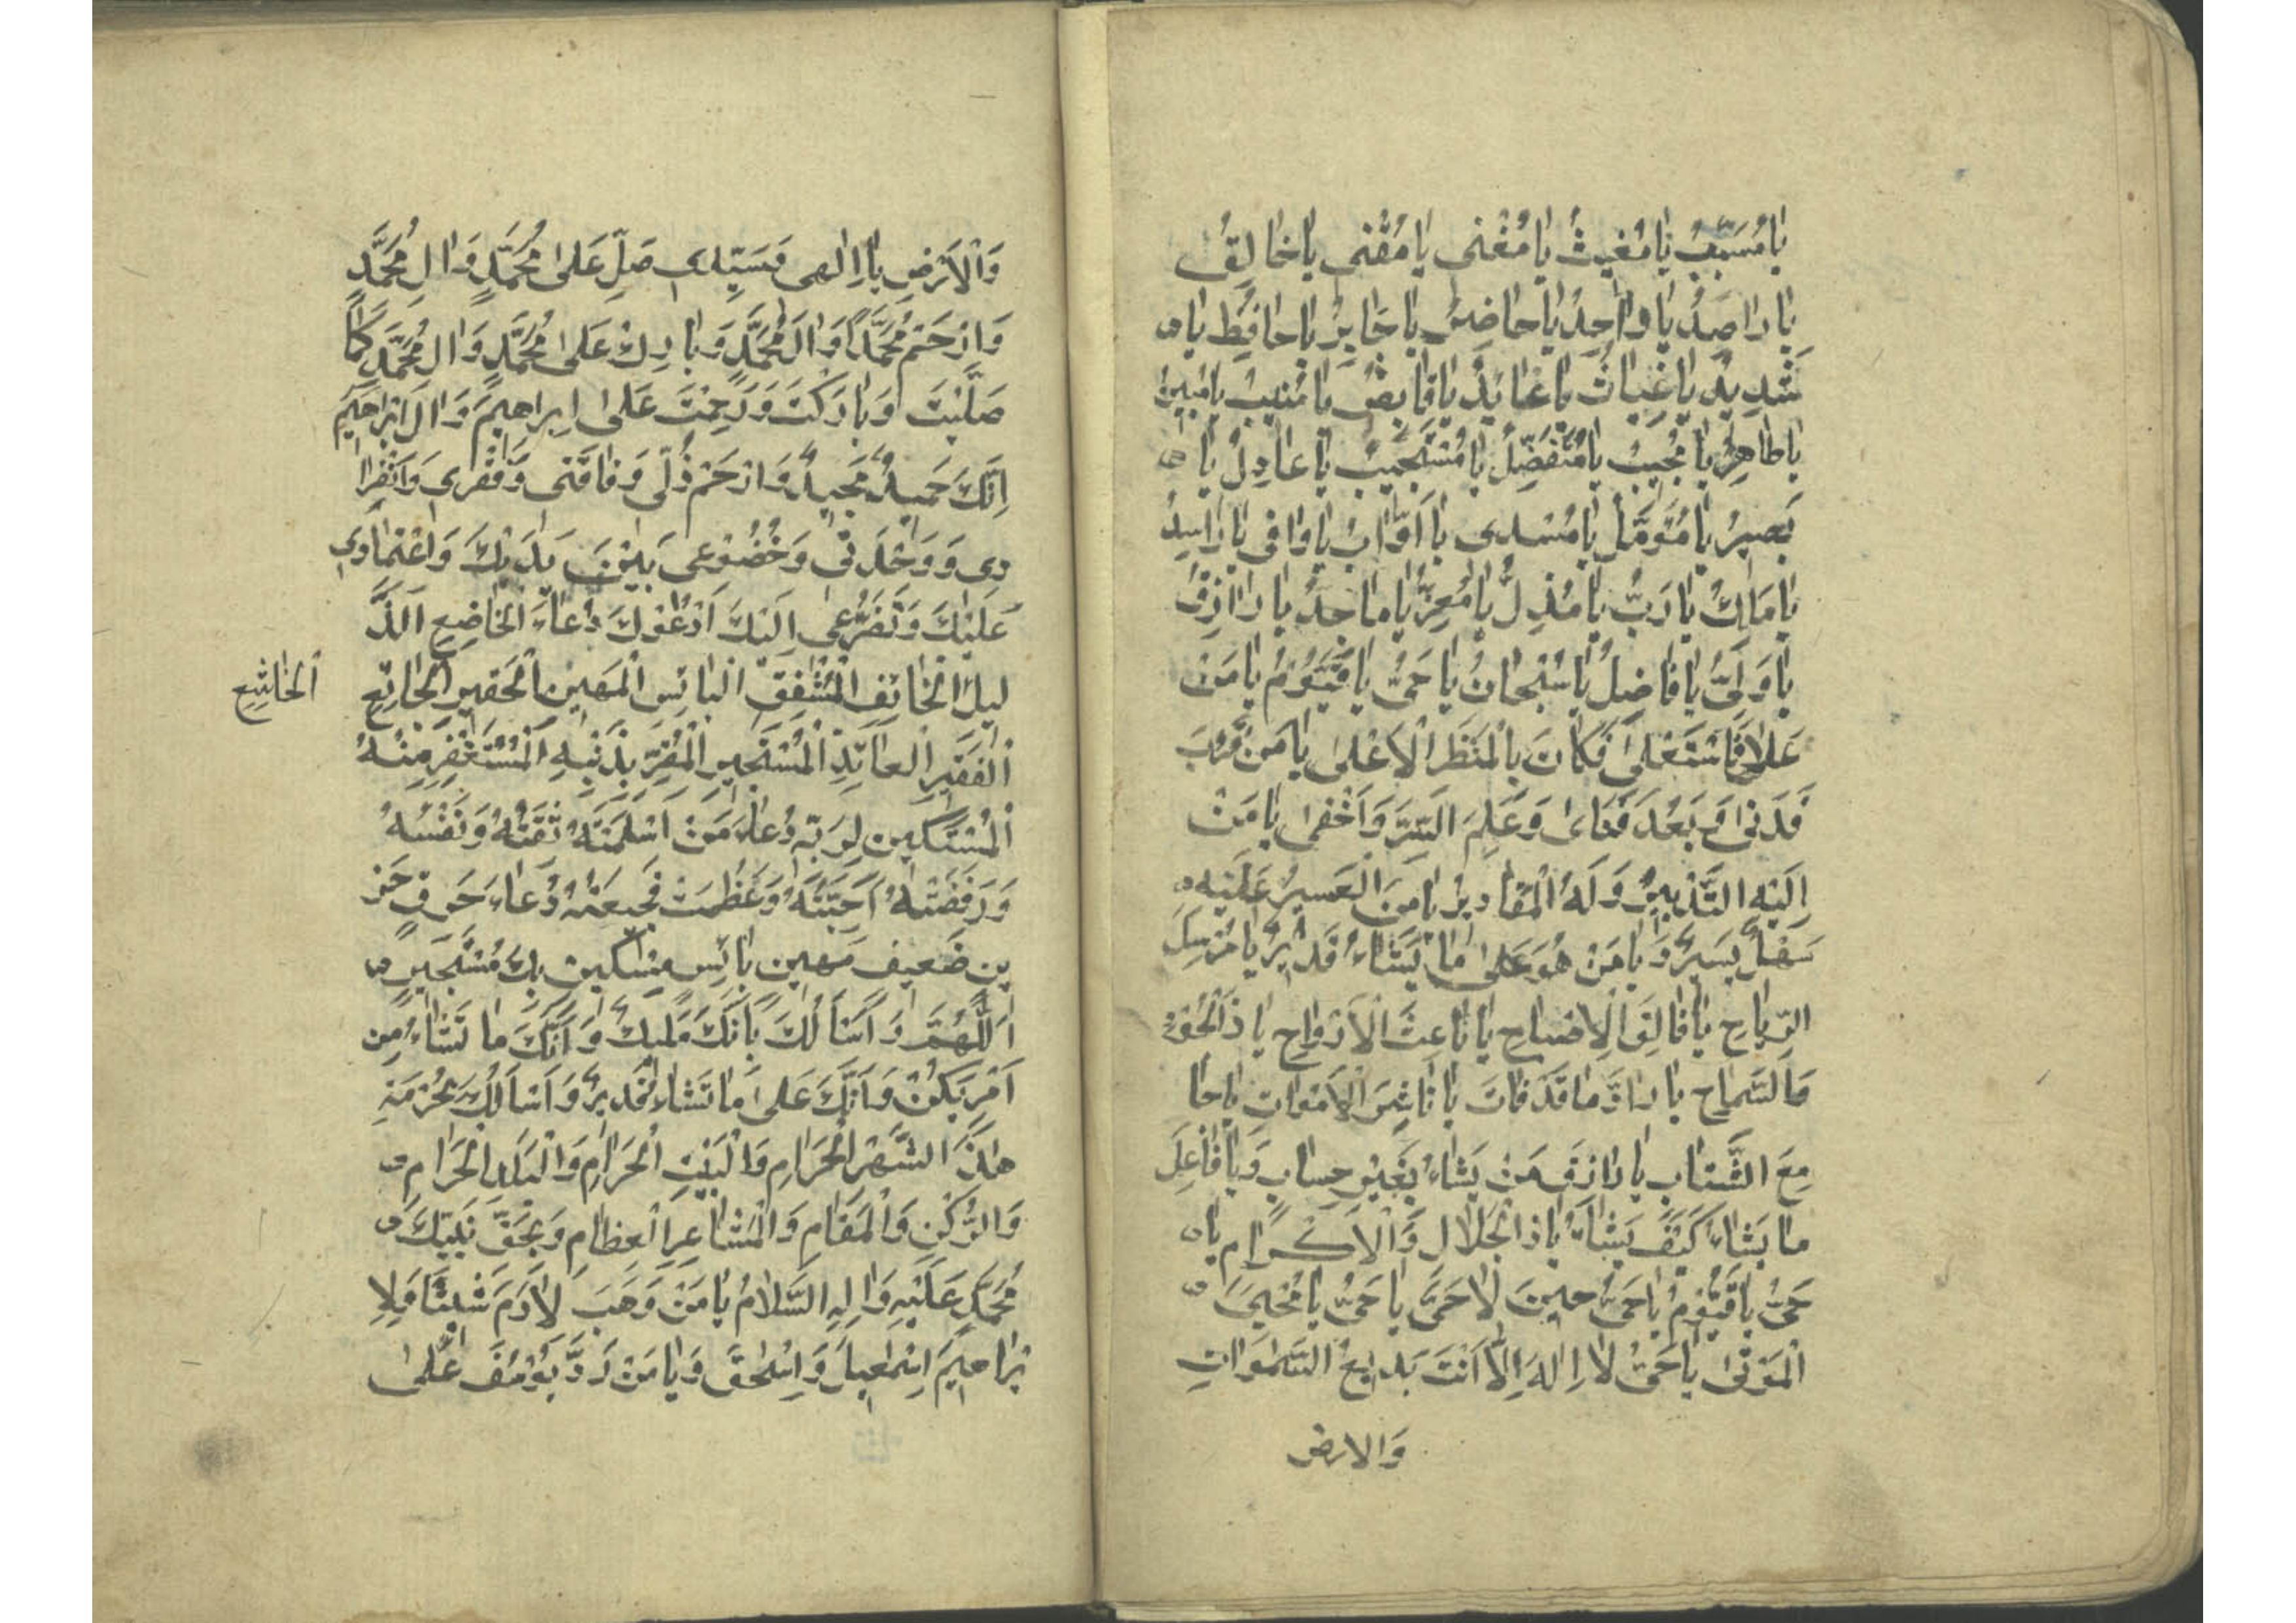 يَا مُسَبِّبُ يَا مُغِيثُ يَا مُغْنِي يَا مُقْنِي يَا خَالِقُ
يَا رَاصِدُ يَا وَاحِدُ يَا حَاضِرُ يَا جَابِرُ يَا حَافِظُ يَا
شَدِيدُ يَا غِيَاثُ يَا عَائِدُ يَا قَابِضُ يَا مُنِيبُ يَا مُبِينُ
يَا طَاهِرُ يَا مُجِيبُ يَا مُتَفَضِّلُ يَا مُسْتَجِيبُ يَا عَادِلُ يَا
بَصِيرُ يَا مُؤَمَّلُ يَا مُسْدِي يَا أَوَّابُ يَا وَافِي يَا رَاشِدُ
يَا مَلِكُ يَا رَبُّ يَا مُذِلُّ يَا مُعِزُّ يَا مَاجِدُ يَا رَازِقُ
يَا وَلِيُّ يَا فَاضِلُ يَا سُبْحَانُ يَا حَيُّ يَا قَيُّومُ يَا مَنْ
عَلَا فَاسْتَعْلَى فَكَانَ بِالْمَنْظَرِ الْأَعْلَى يَا مَنْ قَرُبَ
فَدَنَى وَ بَعُدَ فَنَاىٰ وَ عَلِمَ السِّرَّ وَ أَخْفَى يَا مَنْ
إِلَيْهِ التَّدْبِيرُ وَ لَهُ الْمَقَادِيرُ يَا مَنِ الْعَسِيرُ عَلَيْهِ
سَهْلٌ يَسِيرٌ وَ يَا مَنْ هُوَ عَلَى مَا يَشَاءُ قَدِيرٌ يَا مُرْسِلَ
الرِّيَاحِ يَا فَالِقَ الْإِصْبَاحِ يَا بَاعِثَ الْأَرْوَاحِ يَا ذَا الْجُودِ
وَ السَّمَاحِ يَا رَادَّ مَا قَدْ فَاتَ يَا نَاشِرَ الْأَمْوَاتِ يَا جَا
مِعَ الشَّتَاتِ يَا رَازِقَ مَنْ يَشَاءُ بِغَيْرِ حِسَابٍ وَ يَا فَاعِلَ
مَا يَشَاءُ كَيْفَ يَشَاءُ يَا ذَا الْجَلَالِ وَ الْإِكْرَامِ يَا
حَيُّ يَا قَيُّومُ يَا حَيُّ حِينَ لَا حَيَّ يَا حَيُّ يَا مُحْيِيَ
الْمَوْتَى يَا حَيُّ لَا إِلَهَ إِلَّا أَنْتَ بَدِيعُ السَّمٰوَاتِ
وَالارض
وَ الْأَرْضِ يَا إِلٰهِي وَ سَيِّدِي صَلِّ عَلَى مُحَمَّدٍ وَ اٰلِ مُحَمَّدٍ
وَ ارْحَمْ مُحَمَّدًا وَ اٰلَ مُحَمَّدٍ وَ بَارِكْ عَلَى مُحَمَّدٍ وَ اٰلِ مُحَمَّدٍ كَمَا
صَلَّيْتَ وَ بَارَكْتَ وَ رَحِمْتَ عَلَى إِبْرَاهِيمَ وَ اٰلِ إِبْرَاهِيمَ
إِنَّكَ حَمِيدٌ مَجِيدٌ وَ ارْحَمْ ذُلِّي وَ فَاقَتِي وَ فَقْرِي وَ انْفِرَا
دِي وَ وَحْدَتِي وَ خُضُوعِي بَيْنَ يَدَيْكَ وَ اعْتِمَادِي
عَلَيْكَ وَ تَضَرُّعِي إِلَيْكَ أَدْعُوكَ دُعَاءَ الْخَاضِعِ الذَّ
لِيلِ الْخَائِفِ الْمُشْفِقِ الْبَائِسِ الْمَهِينِ الْحَقِيرِ الْجَائِعِ
الْخَاشِعِ
الْفَقِيرِ الْعَائِذِ الْمُسْتَجِيرِ الْمُقِرِّ بِذَنْبِهِ الْمُسْتَغْفِرِ مِنْهُ
الْمُسْتَكِينِ لِرَبِّهِ دُعَاءَ مَنْ أَسْلَمَتْهُ ثِقَتُهُ وَ نَفْسُهُ
وَ رَفَضَتْهُ أَحِبَّتُهُ وَ عَظُمَتْ فَجِيعَتُهُ دُعَاءَ حَرِقٍ حَزِ
ينٍ ضَعِيفٍ مَهِينٍ بَائِسٍ مِسْكِينٍ بِكَ مُسْتَجِيرٍ
اَللّٰهُمَّ وَ أَسْأَلُكَ بِأَنَّكَ مَلِيكٌ وَ أَنَّكَ مَا تَشَاءُ مِنْ
أَمْرٍ يَكُونُ وَ أَنَّكَ عَلَى مَا تَشَاءُ قَدِيرٌ وَ أَسْأَلُكَ بِحُرْمَةِ
هٰذَا الشَّهْرِ الْحَرَامِ وَ الْبَيْتِ الْحَرَامِ وَ الْبَلَدِ الْحَرَامِ
وَ الرُّكْنِ وَ الْمَقَامِ وَ الْمَشَاعِرِ الْعِظَامِ وَ بِحَقِّ نَبِيِّكَ
مُحَمَّدٍ عَلَيْهِ وَ اٰلِهِ السَّلَامُ يَا مَنْ وَهَبَ لِاٰدَمَ شَيْثًا وَ لِإِ
بْرَاهِيمَ إِسْمٰعِيلَ وَ إِسْحٰقَ وَ يَا مَنْ رَدَّ يُوسُفَ عَلَى